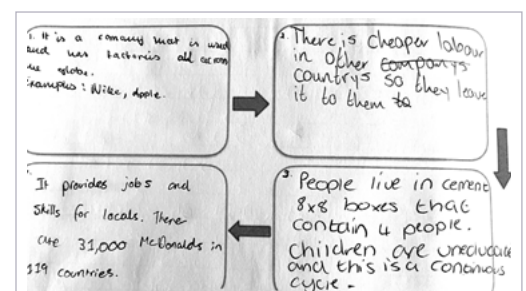 1. It is a company that is used
and has factories all across
the globe.
Examples: Nike, Apple.
2. There is cheaper labour
in other companys
countrys so they leave
it to them to
3. People live in cement
8x8 boxes that
contain 4 people.
Children are uneducate
and this is a continous
cycle.
It provides jobs and
skills for locals. There
are 31,000 McDonalds in
119 countries.